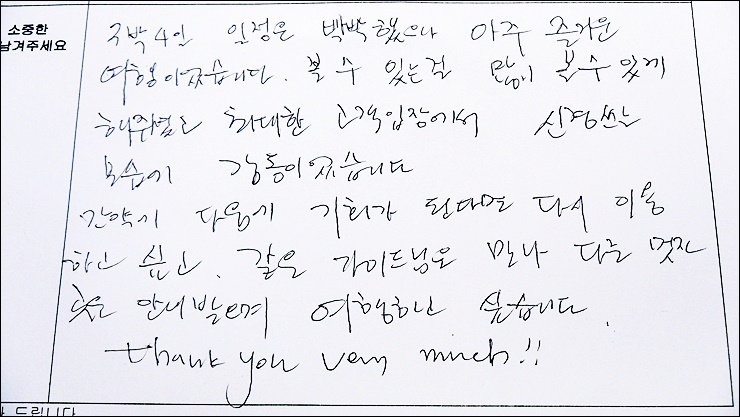 소중한
남겨주세요
3박4일 일정은 빡빡했으나 아주 즐거운
여행이었습니다. 볼 수 있는걸 많이 볼 수 있게
해주셨고 최대한 고객입장에서 신경쓰는
모습이 감동이었습니다
만약에 다음에 기회가 된다면 다시 이용
하고 싶고, 같은 가이드님을 만나 다른 멋진
곳을 안내받으며 여행하고 싶습니다.
Thank you very much!!
드립니다